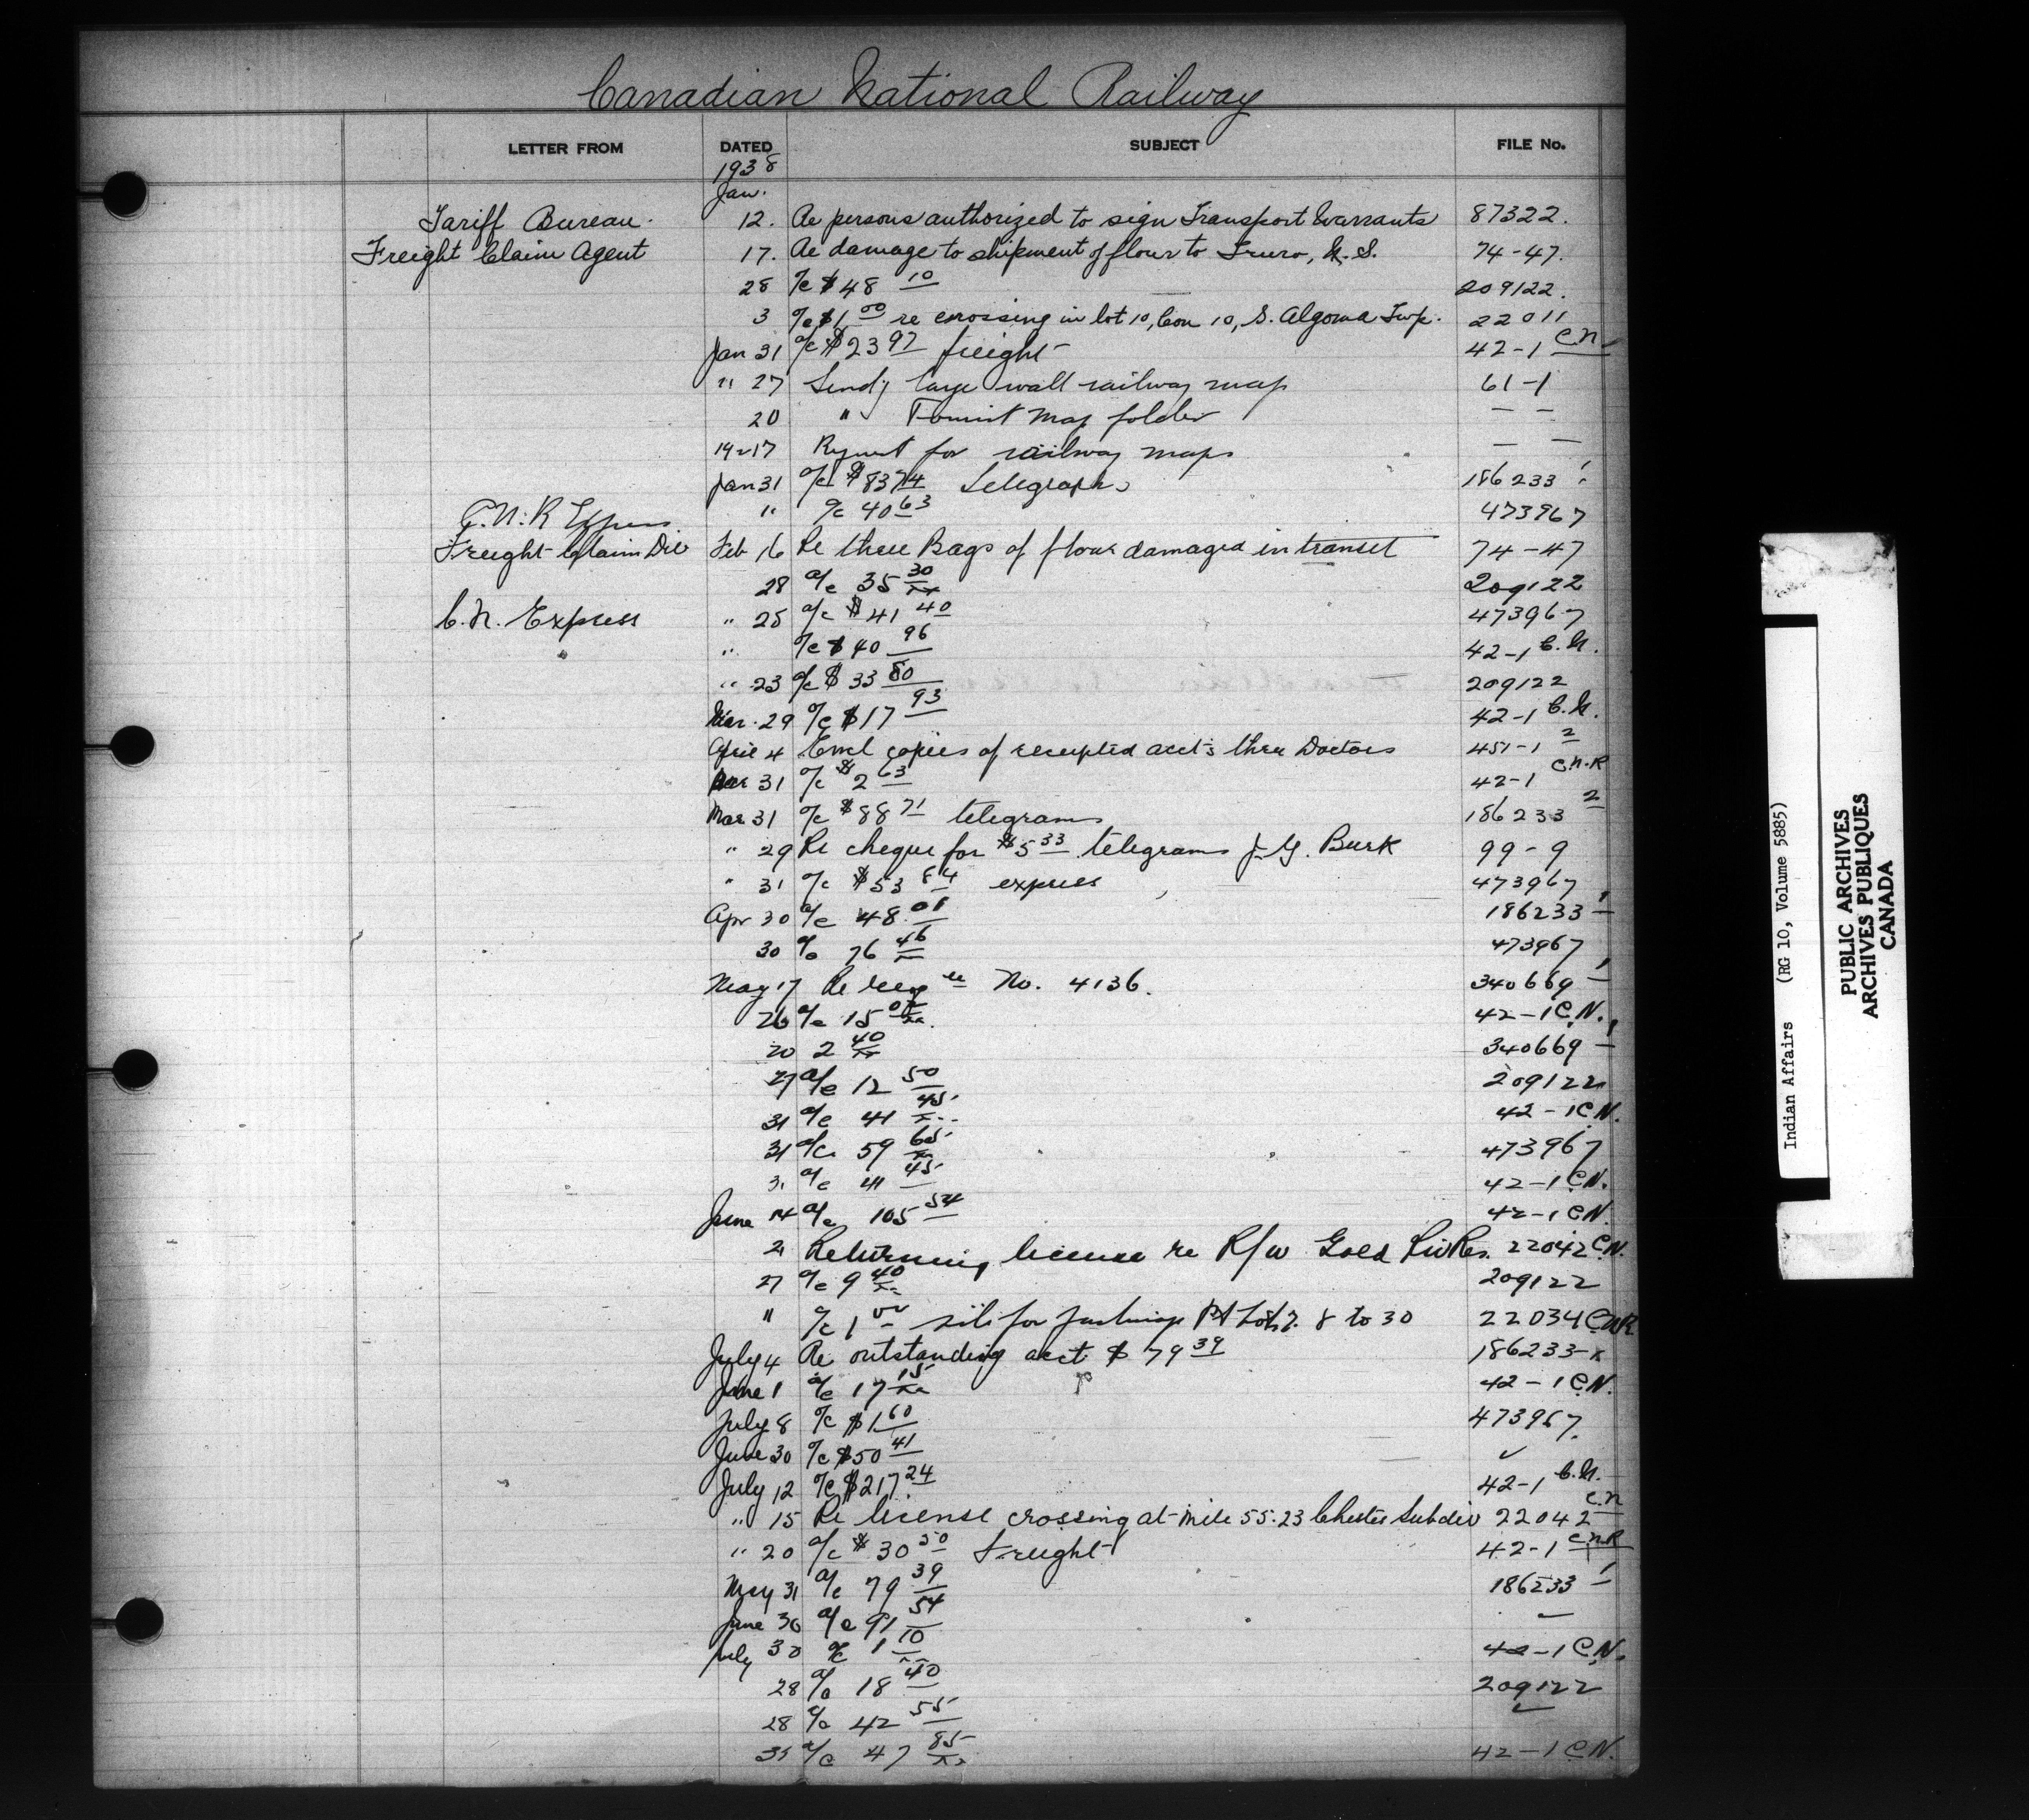 Canadian National Railway
LETTER FROM DATED SUBJECT FILE No.
1938
Jan.
Tariff Bureau. 12. Re persons authorized to sign Transport Warrants 87322.
Freight Claim Agent 17. Re damage to shipment of flour to Truro, N.S. 74-47.
28 a/c $48 10 209122.
3 a/c $1 00 re crossing in lot 10, Con 10, S. Algoma Twp. 22011
Jan 31 a/c $23 97 freight 42-1 C.N.
" 27 Sendg large wall railway map 61-1
20 " Tourist map folder — —
19 & 17 Request for railway maps — —
Jan 31 a/c $83 74 telegraphs 186233
" a/c 40 63 473967
C.N.R Express
Freight Claim Div Feb 16 Re three Bags of flour damaged in transit 74-47
28 a/c 35 30 209122
C.N. Express " 25 a/c $41 40 473967
" a/c $40 96 42-1 C.N.
" 23 a/c $33 80 209122
Mar. 29 a/c $17 93 42-1 C.N.
April 4 Encl copies of receipted acct's three Doctors 451-1 2
Mar 31 a/c $2 63 42-1 C.N.R
Mar 31 a/c $88 71 telegrams 186233 2
" 29 Re cheque for $5 33 telegrams J.G. Burk 99-9
" 31 a/c $53 84 express 473967
Apr 30 a/c 48 01 186233 1
30 a/c 76 46 473967
May 17 Re No. 4136. 340669 1
26 a/c 15 42-1 C.N.
20 2 40 340669 1
27 a/c 12 50 209122
31 a/c 41 45 42-1 C.N.
31 a/c 59 65 473967
31 a/c 41 45 42-1 C.N.
June 14 a/c 105 54 42-1 C.N.
21 Returning license re R/W Gold Riv Res. 22042 C.N.
27 a/c 9 40 209122
" a/c 1 00 for Pt Lots 8 to 30 22034 CNR
July 4 Re outstanding acct $79 39 186233-
June 1 a/c 17 15 42-1 C.N.
July 8 a/c $1 60 473967.
June 30 a/c $50 41 ✓
July 12 a/c $217 24 42-1 C.N.
" 15 Re license crossing at mile 55.23 Chester Subdiv 22042 C.N
" 20 a/c $30 50 freight 42-1 C.N.R
May 31 a/c 79 39 186233 1
June 30 a/c 91 54
July 30 a/c 1 10 42-1 C.N.
28 a/c 18 40 209122
28 a/c 42 55
a/c 47 85 42-1 C.N.
Indian Affairs (RG 10, Volume 5885)
PUBLIC ARCHIVES
ARCHIVES PUBLIQUES
CANADA